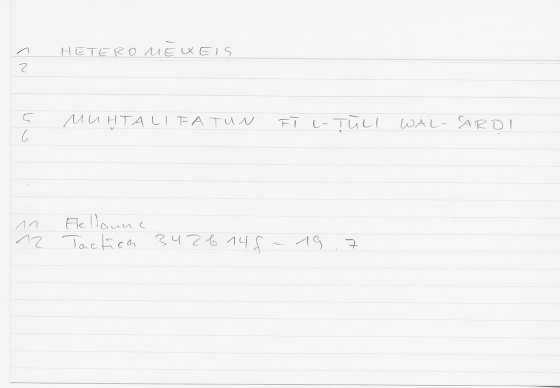 1 HETEROMĒKEIS
2
5 MUḪTALIFATUN FĪ L-ṬŪLI WAL-ʿARḌI
6
11 Aelianus
12 Tactica 342b 14f - 19.7